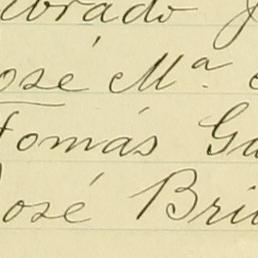 brado J
osé Mª.
Tomás Ga
José Bri